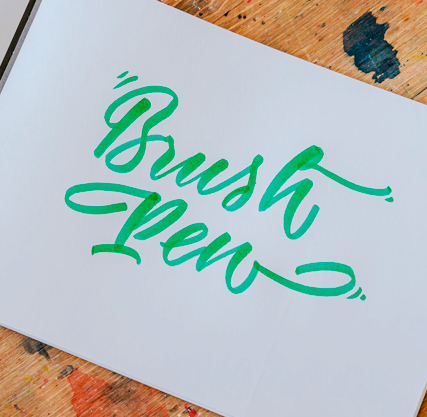 Brush
Pen